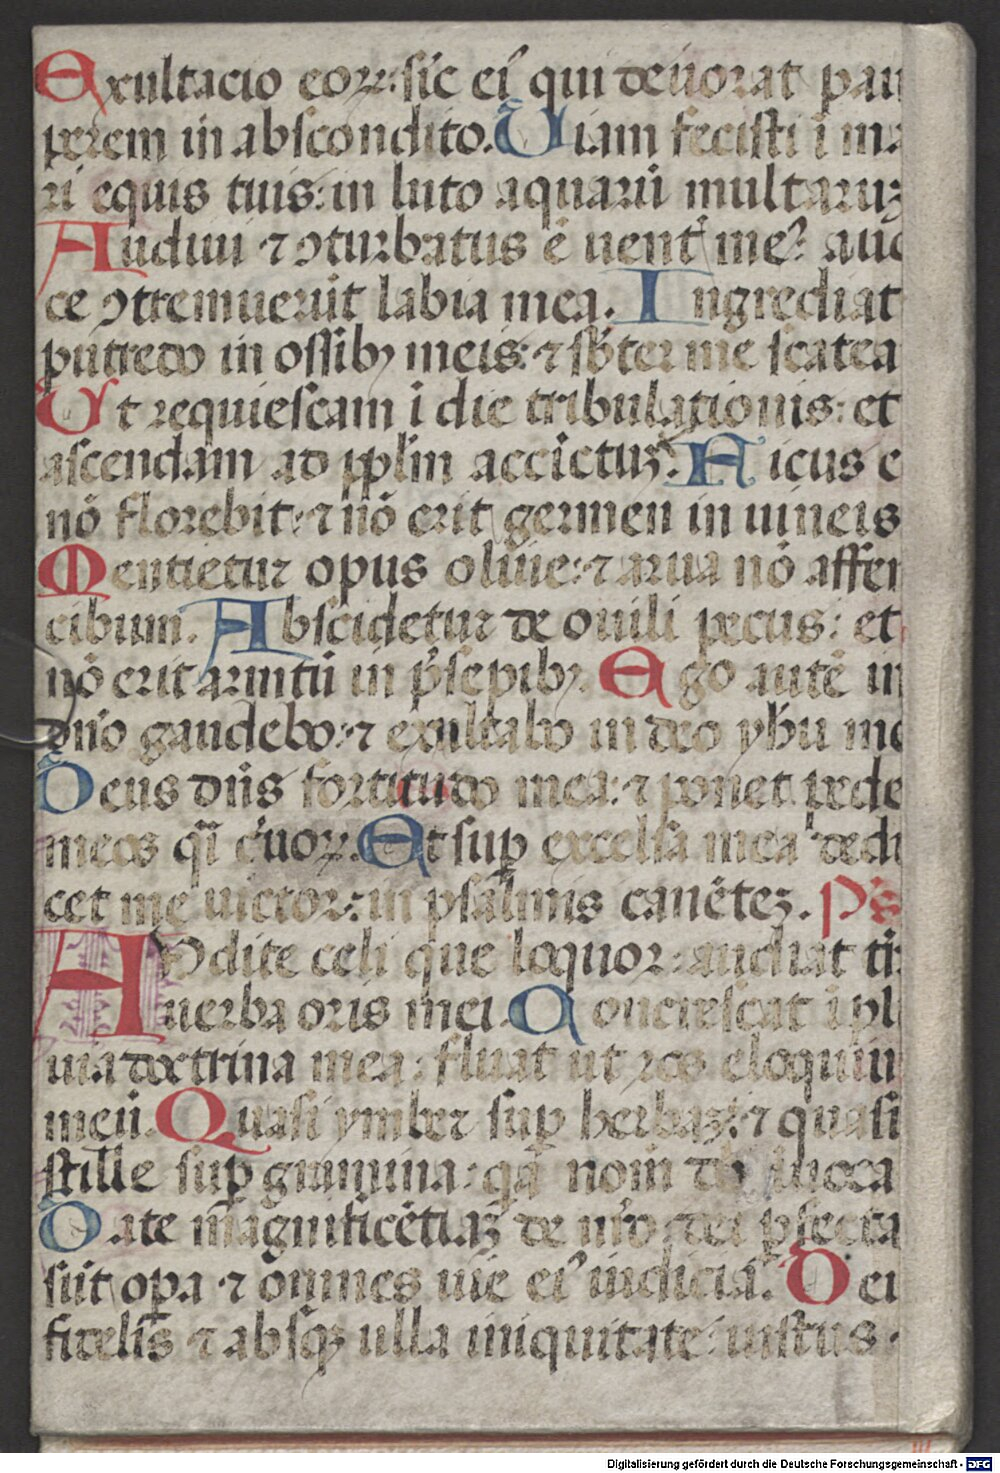 Exultacio eoꝝ: sic ei' qui deuorat pau
perem in abscondito. Uiam fecisti ī ma
ri equis tuis: in luto aquarū multaruꝫ
Audiui ⁊ ꝯturbatus ē uent̄ me': auo
ce ꝯtremuerūt labia mea. Ingrediat
putredo in ossibꝫ meis: ⁊ sb̄ter me scatea
Ut requiescam ī die tribulationis: et
ascendam ad ppl̄m accīctuꝫ. Ficus e
nō florebit: ⁊ nō erit germen in uineis
Mentietur opus oliue: ⁊ arua nō affer
cibum. Abscidetur de ouili pecus: et
nō erit armtū in p̄sepibꝫ. Ego autē in
dn̄o gaudebo: ⁊ exultabo in deo yhū me
Deus dn̄s fortitudo mea: ⁊ ponet pede
meos q̄i c̄uoꝝ. Et suꝑ excelsa mea dedu
cet me uictor: in psalmis canēteꝫ. Ps
Audite celi que loquor: audiat ti
uerba oris mei. Concrescat ī pl
uia doctrina mea: fluat ut ros eloquiu
meū. Quasi ymber suꝑ herbaꝫ: ⁊ quasi
stille suꝑ gramina: q̄a nom̄ dn̄i īuoca
Date magnificētiaꝫ deo nr̄o: dei ꝑfecta
sūt oꝑa ⁊ om̄nes uie ei' iudicia. Deu
fidelis ⁊ absqꝫ ulla iniquitate: iustus
Digitalisierung gefördert durch die Deutsche Forschungsgemeinschaft - DFG